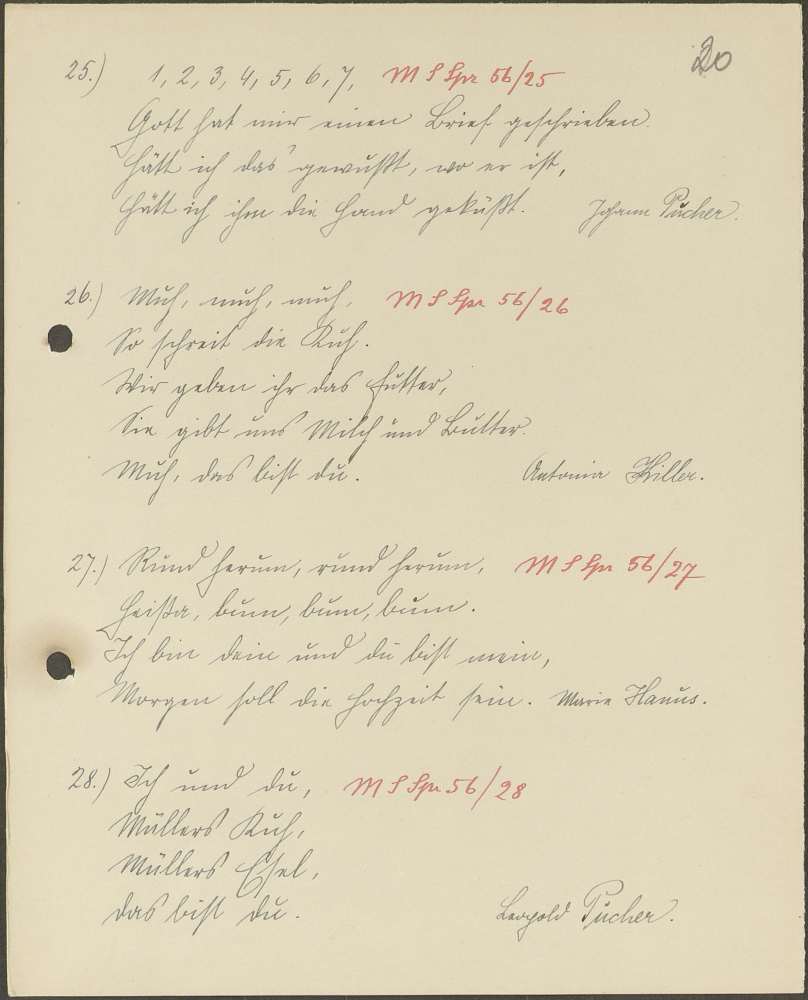 20
25.) 1, 2, 3, 4, 5, 6, 7, M S Spr 56/25
Gott hat mir einen Brief geschrieben.
Hätt ich das gewußt, wo er ist,
Hätt ich ihm die Hand geküßt. Johann Pucher.
26.) Muh, muh, muh, M S Spr 56/26
So schreit die Kuh.
Wir geben ihr das Futter,
Sie gibt uns Milch und Butter.
Muh, das bist du. Antonia Hiller.
27.) Rund herum, rund herum, M S Spr 56/27
Heißa, bum, bum, bum.
Ich bin dein und du bist mein,
Morgen soll die Hochzeit sein. Marie Hanus.
28.) Ich und du, M S Spr 56/28
Müllers Kuh,
Müllers Esel,
das bist du. Leopold Pucher.